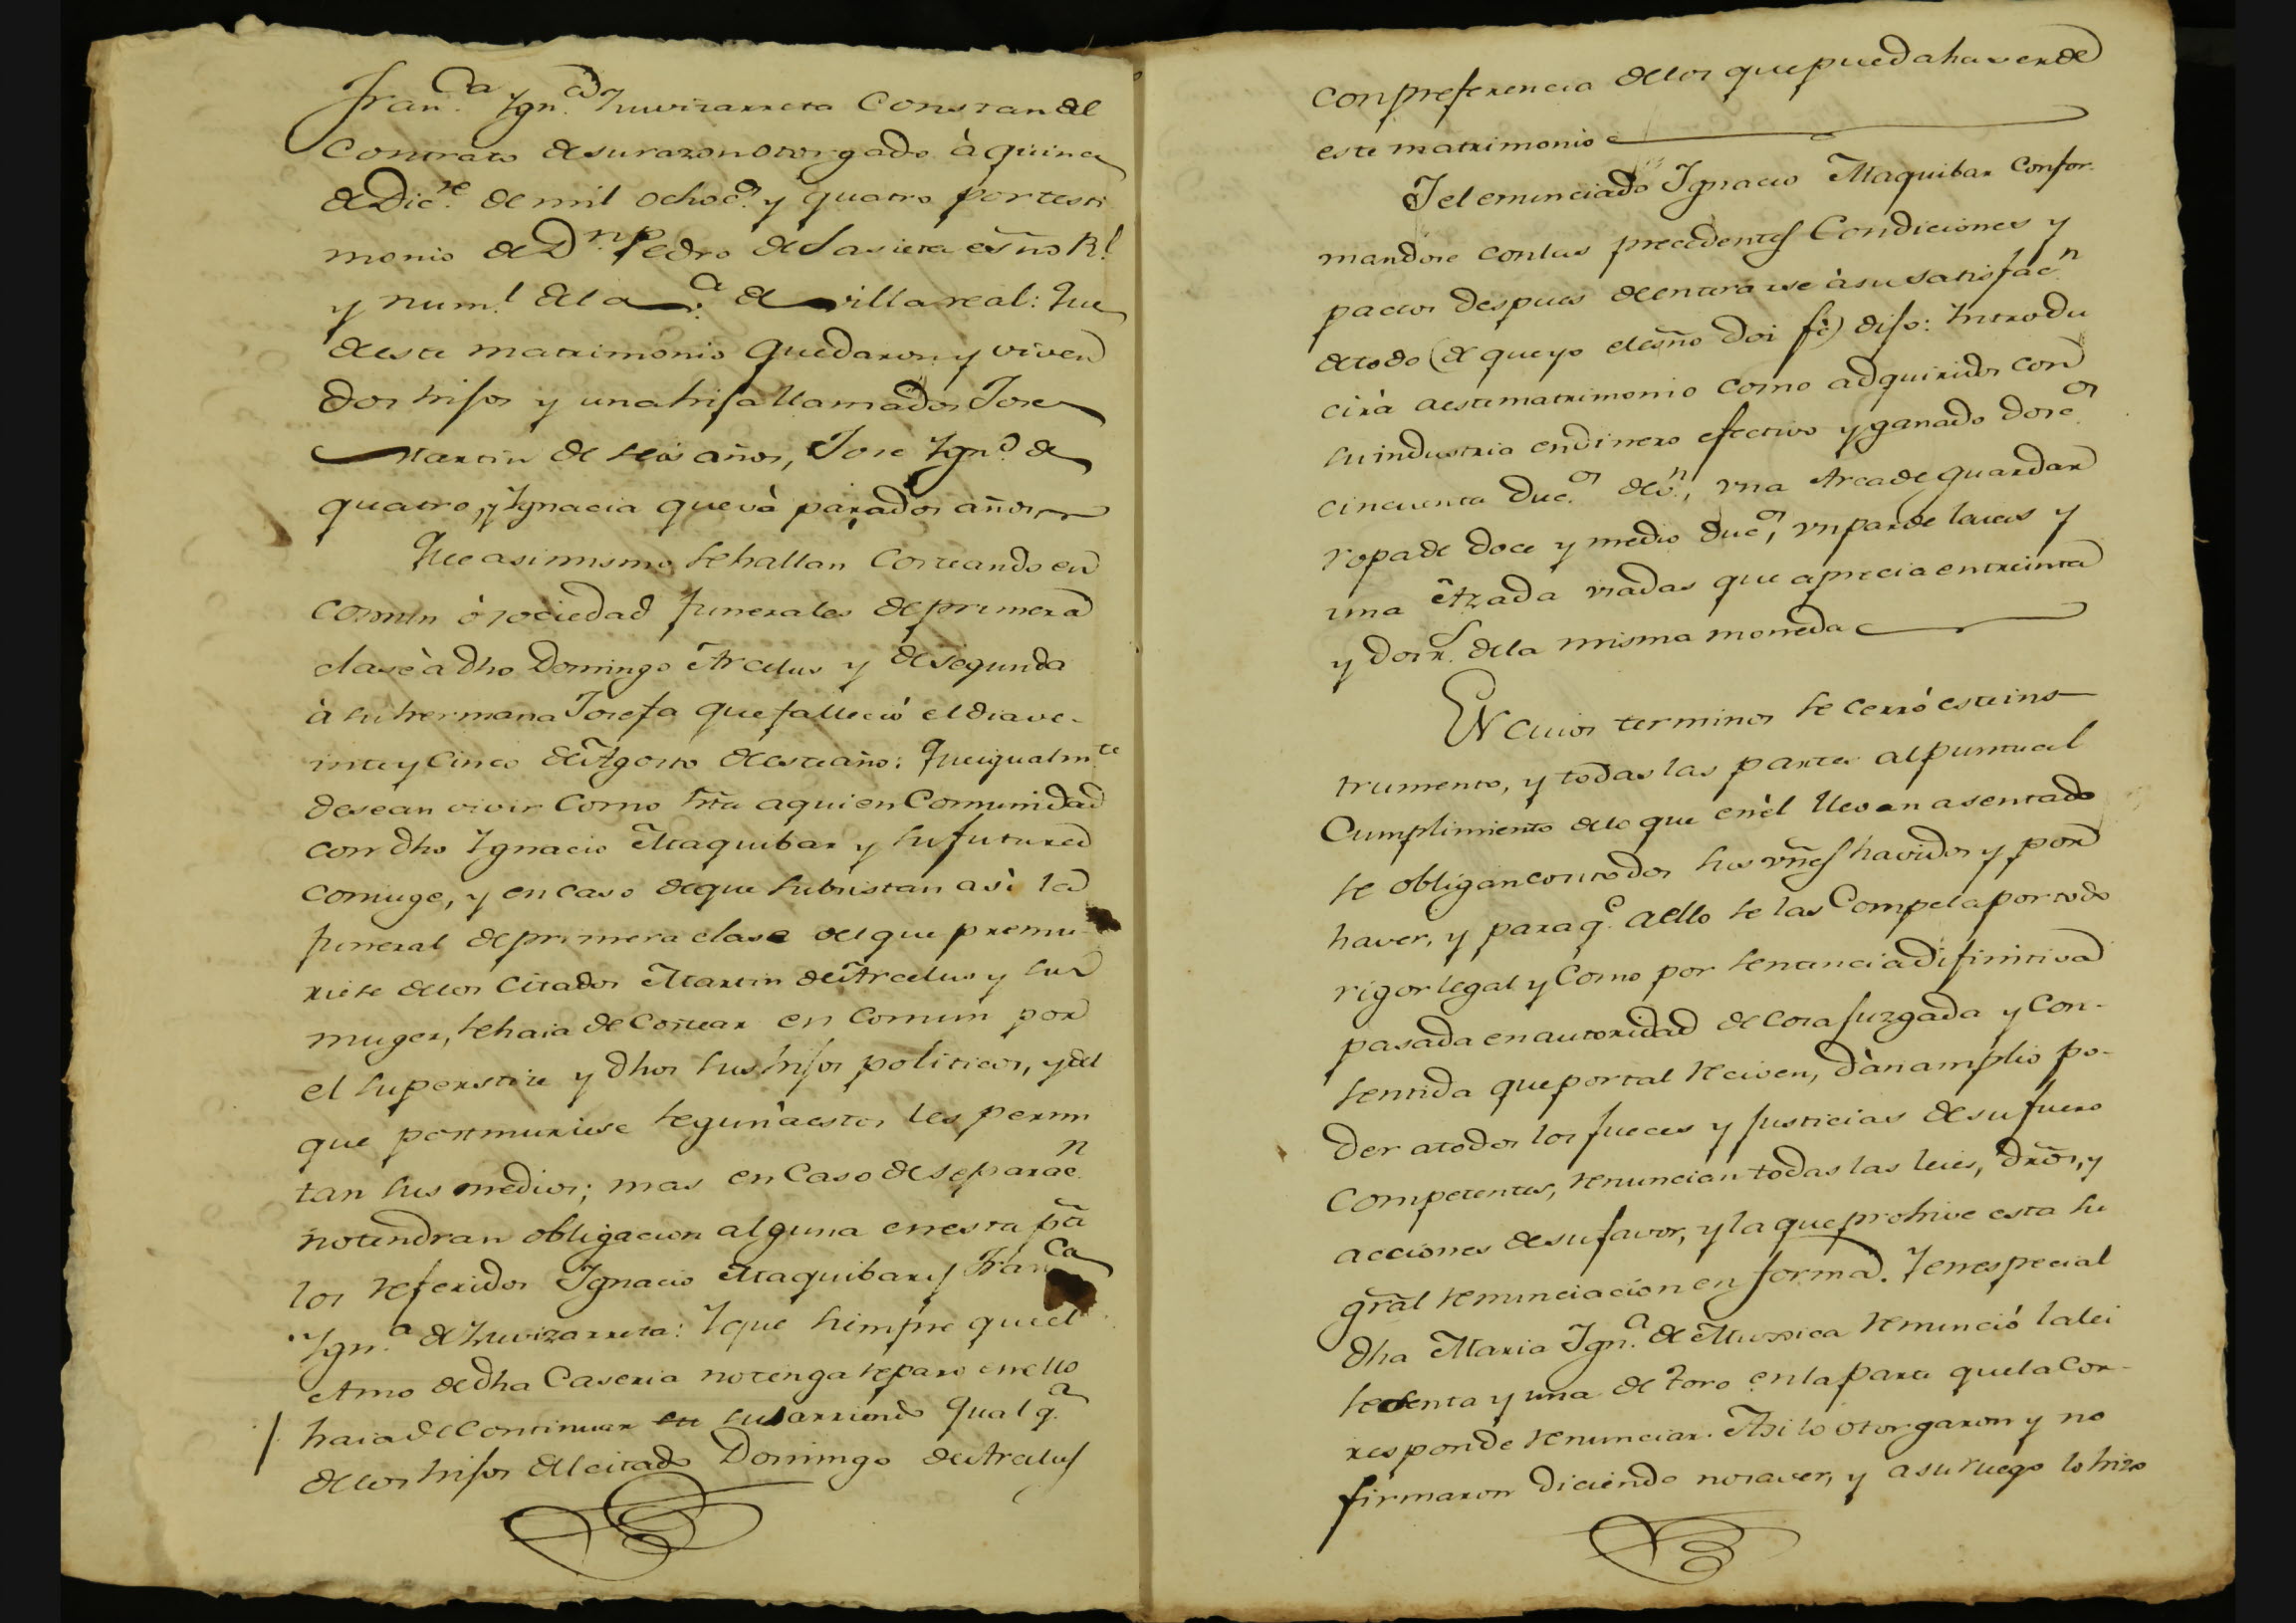 Fran.ca Ygn.a Yruvizarreta Constan del
Contrato de su razon otorgado à quince
de Dic.re de mil ochoc.s y quatro por testi
monio de D.n Pedro de Lasieta esño R.l
y num.l de la v.a de villareal: Que
de este matrimonio quedaron y viven
dos hijos y una hija llamados Jose
Martin de seis años, Jose Ygn.o de
quatro, y Ygnacia que và para dos años
Que asimismo se hallan Costeando en
comun ò sociedad funerales de primera
clase à dho Domingo Arcelus y de segunda
à su hermana Josefa que falleció el dia ve-
inte y Cinco de Agosto de este año: Que igualm.te
desean vivir como hta aqui en Comunidad
con dho Ygnacio Maquibar y su futura
conjuge, y en caso de que subsistan asì la
funeral de primera clase del que premu-
riese de los citados Martin de Arcelus y su
muger, se haia de Costear en Comun por
el superstite y dhos sus hijos politicos, y del
que postmuriese segun à estos les permi
tan sus medios; mas en Caso de separac.n
no tendran obligacion alguna en esta pte
los referidos Ygnacio Maquibar y Fran.ca
Ygn.a de Yruvizarreta: Y que siempre que el
Amo de dha Caseria no tenga reparo en ello
haia de continuar su arriendo qualq.a
de los hijos del citado Domingo de Arcelus
con preferencia de los que pueda haver de
este matrimonio
Y el enunciado Ygnacio Maquibar Confor-
mandose con las precedentes Condiciones y
pactos despues de enterarse à su satisfac.n
de todo (de que yo el esño doi fè) dijo: Introdu
cirà a este matrimonio como adquiridos con
su industria en dinero efectivo y ganado dosc.s
cincuenta duc.s de v.n, una Arca de guardar
ropa de doce y medio duc.s, un par de laias y
una Azada usadas que aprecia en treinta
y dos r.s de la misma moneda
En cuios terminos se cerrò este ins-
trumento, y todas las partes al puntual
Cumplimiento de lo que en èl llevan asentado
se obligan con todos sus vñes havidos y por
haver, y para q.e a ello se las Compela por todo
rigor legal y Como por sentencia difinitiva
pasada en autoridad de cosa juzgada y con-
sentida que por tal reciven, dàn amplio po-
der a todos los jueces y justicias de su fuero
Competentes, renuncian todas las leies, dròs, y
acciones de su favor, y la que prohive esta su
gral renunciacion en forma. Y en especial
dha Maria Ygn.a de Muxica renunciò la lei
sesenta y una de Toro en la parte que la Cor-
responde renunciar. Asi lo otorgaron y no
firmaron diciendo no saver, y a su ruego lo hizo